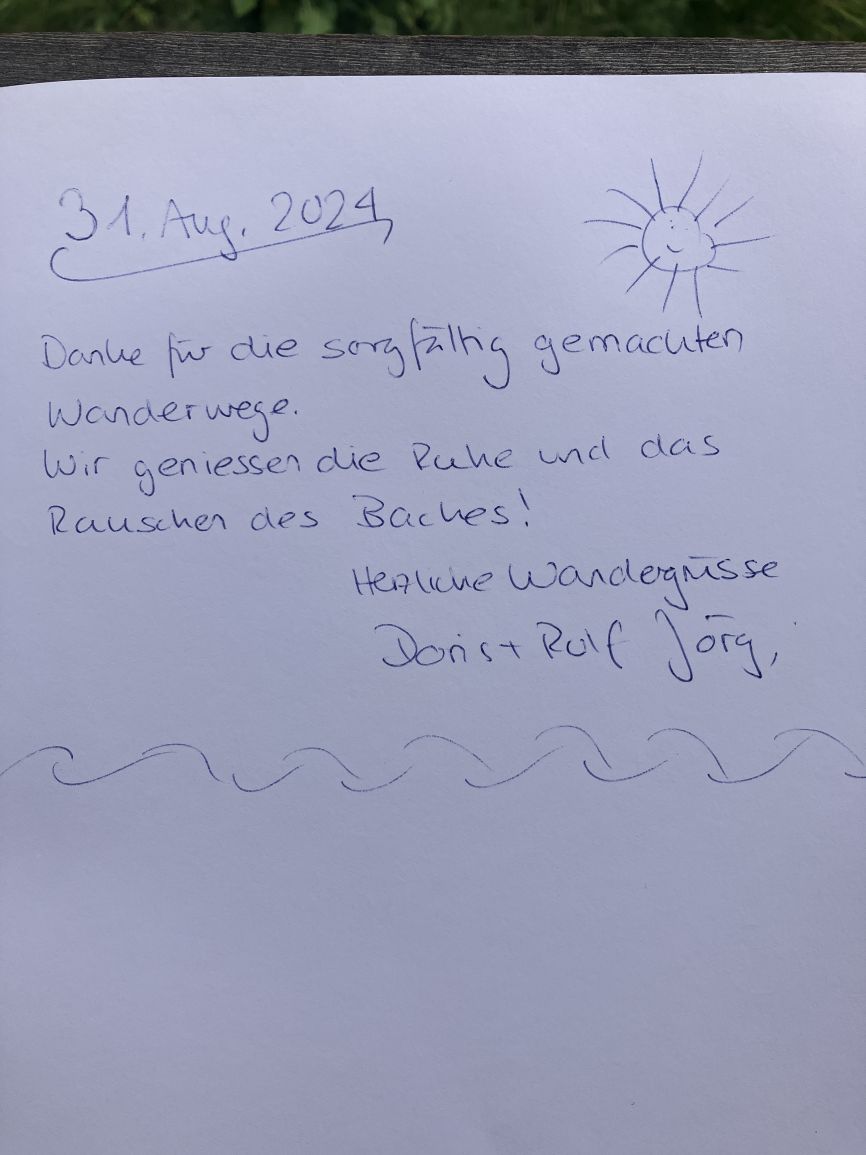 31. Aug. 2024
Danke für die sorgfältig gemachten
Wanderwege.
Wir geniessen die Ruhe und das
Rauschen des Baches!
Herzliche Wandergrüsse
Doris + Rolf Jörg,